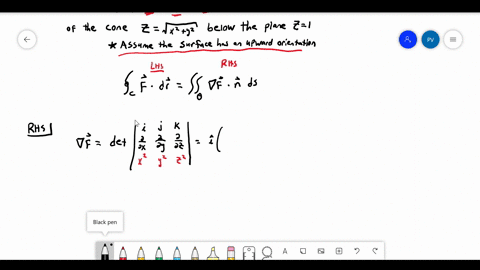 of the cone z = √x²+y² below the plane z=1
* Assume the surface has an upward orientation
LHS RHS
∮_C F⃗ · dr⃗ = ∬_θ ∇F⃗ · n⃗ ds
RHS
∇F⃗ = det | i j k ; ∂/∂x ∂/∂y ∂/∂z ; x² y² z² | = î (
Black pen
PV
A